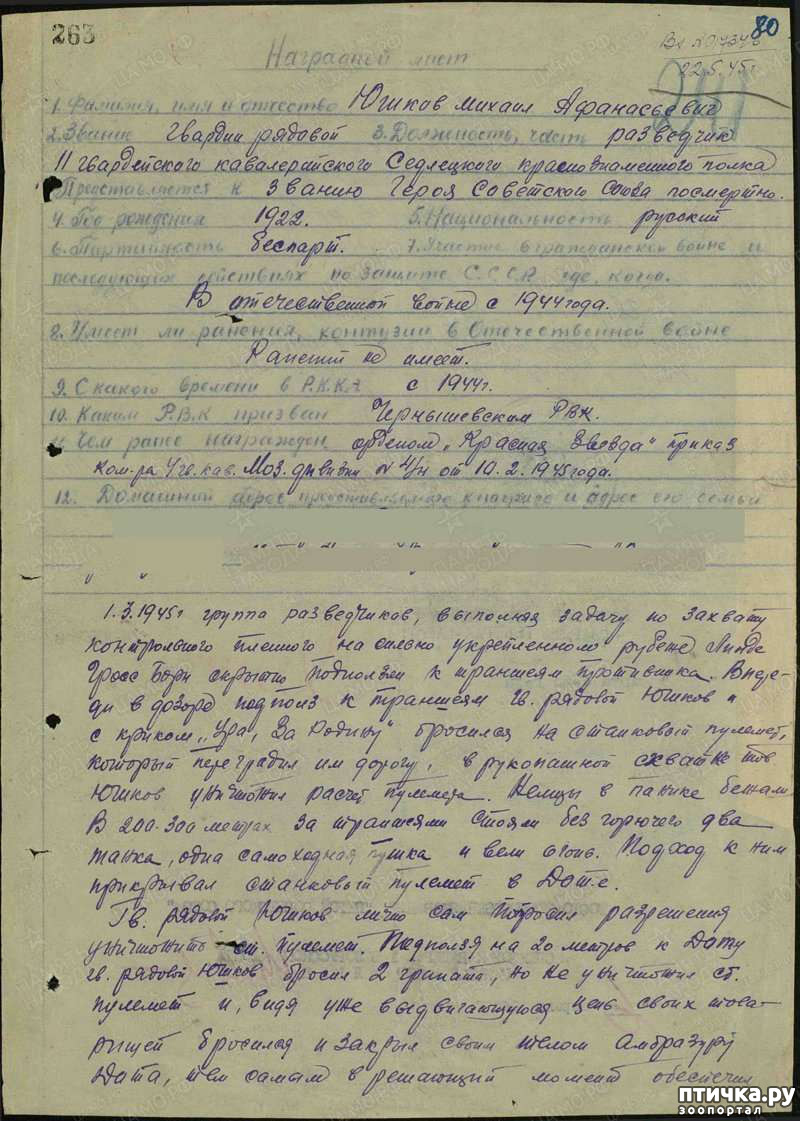 263
80
Вх №07378
22.5.45г.
Наградной лист
1. Фамилия, имя и отчество Юшков Михаил Афанасьевич
2. Звание гвардии рядовой 3. Должность, часть разведчик
11 гвардейского кавалерийского Седлецкого краснознаменного полка
Представляется к званию Героя Советского Союза посмертно.
4. Год рождения 1922. 5. Национальность русский
6. Партийность беспарт. 7. Участие в гражданской войне и
последующих действиях по защите С.С.С.Р. где, когда.
В отечественной войне с 1944 года.
8. Имеет ли ранения, контузии в Отечественной войне
Ранений не имеет.
9. С какого времени в Р.К.К.А. с 1944г.
10. Каким Р.В.К призван Чернышевским РВК.
11. Чем ранее награжден орденом „Красная Звезда" приказ
ком-ра 4 гв. кав. Моз. дивизии № 4/н от 10.2.1945 года.
12. Домашний адрес представляемого к награде и адрес его семьи
1.3.1945г группа разведчиков, выполняя задачу по захвату
контрольного пленного на сильно укрепленном рубеже Линде
Гросс Борн скрытно подползли к траншеям противника. Впере-
ди в дозоре подполз к траншеям гв. рядовой Юшков и
с криком „Ура, За Родину" бросился на станковый пулемет,
который преградил им дорогу, в рукопашной схватке тов.
Юшков уничтожил расчет пулемета. Немцы в панике бежали.
В 200-300 метрах за траншеями стояли без горючего два
танка, одна самоходная пушка и вели огонь. Подход к ним
прикрывал станковый пулемет в Дот-е.
Гв. рядовой Юшков лично сам попросил разрешения
уничтожить ст. пулемет. Подползя на 20 метров к Доту
гв. рядовой Юшков бросил 2 гранаты, но не уничтожил ст.
пулемет и, видя уже выдвигающуюся цепь своих това-
рищей бросился и закрыл своим телом Амбразуру
Дота, тем самым в решающий момент обеспечил
птичка.ру
зоопортал